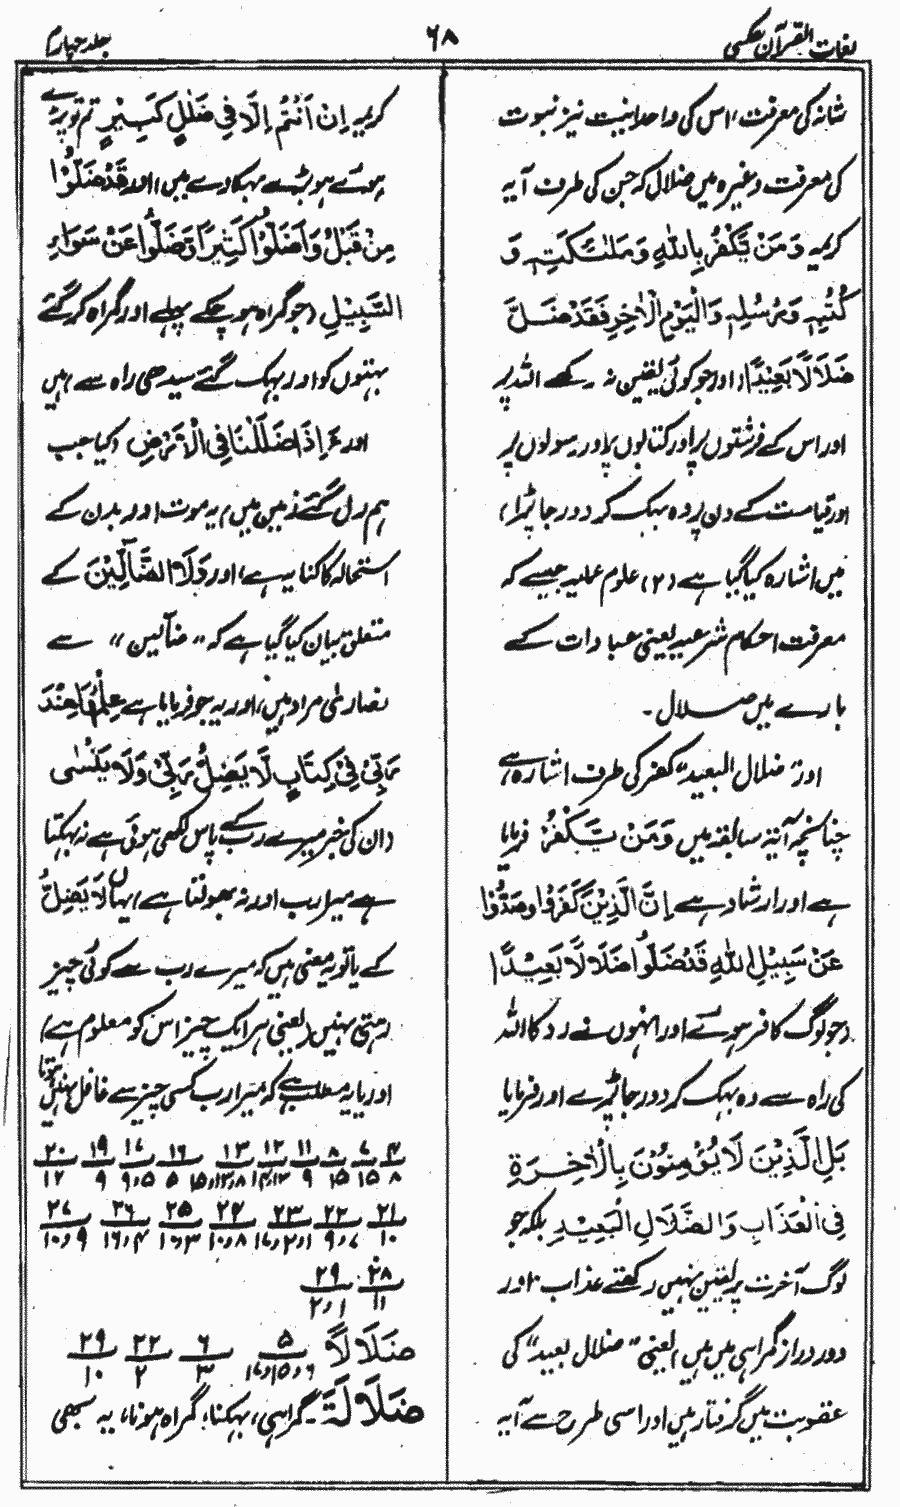 لغات القرآن عکسی
۶۸
جلد چہارم
شانہ کی معرفت، اس کی وحدانیت نیز نبوت
کی معرفت وغیرہ میں ضلال کہ جن کی طرف آیہ
کریمہ وَمَنْ تَّكْفُرْ بِاللّٰهِ وَمَلٰٓئِكَتِهٖ وَ
كُتُبِهٖ وَرُسُلِهٖ وَالْيَوْمِ الْاٰخِرِ فَقَدْ ضَلَّ
ضَلَالًا بَعِيْدًا (اور جو کوئی یقین نہ رکھے اللہ پر
اور اس کے فرشتوں پر اور کتابوں پر اور رسولوں پر
اور قیامت کے دن پر وہ بہک کر دور جا پڑا)
میں اشارہ کیا گیا ہے (۲) علوم عملیہ جیسے کہ
معرفت احکام شرعیہ یعنی عبادات کے
بارے میں ضلال ۔
اور ”ضلال البعید“ کفر کی طرف اشارہ ہے،
چنانچہ آیۃ سابقہ میں وَمَنْ يَّكْفُرْ فرمایا
ہے اور ارشاد ہے اِنَّ الَّذِيْنَ كَفَرُوْا وَصَدُّوْا
عَنْ سَبِيْلِ اللّٰهِ قَدْ ضَلُّوْا ضَلَالًا بَعِيْدًا (
(جو لوگ کافر ہوئے اور انہوں نے روکا اللہ
کی راہ سے وہ بہک کر دور جا پڑے اور فرمایا
بَلِ الَّذِيْنَ لَا يُؤْمِنُوْنَ بِالْاٰخِرَةِ
فِي الْعَذَابِ وَالضَّلَالِ الْبَعِيْدِ بلکہ جو
لوگ آخرت پر یقین نہیں رکھتے عذاب اور
دور دراز گمراہی میں ہیں) یعنی ”ضلال بعید“ کی
عقوبت میں گرفتار ہیں اور اسی طرح سے آیہ
کریمہ اِنْ اَنْتُمْ اِلَّا فِيْ ضَلٰلٍ كَبِيْرٍ تم تو پڑے
ہوئے ہو بڑے بہکاوے میں) اور قَدْ ضَلُّوْا
مِنْ قَبْلُ وَاَضَلُّوْا كَثِيْرًا وَّضَلُّوْا عَنْ سَوَآءِ
السَّبِيْلِ (جو گمراہ ہو چکے پہلے اور گمراہ کر گئے
بہتوں کو اور بہک گئے سیدھی راہ سے) ہیں
اور ءَاِذَا ضَلَلْنَا فِي الْاَرْضِ (کیا جب
ہم رل گئے زمین میں) یہ موت اور بدن کے
استحالہ کا کنایہ ہے، اور وَلَا الضَّآلِّيْنَ کے
متعلق بیان کیا گیا ہے کہ ”ضآلین“ سے
نصاریٰ مراد ہیں، اور یہ جو فرمایا ہے عِلْمُهَا عِنْدَ
رَبِّيْ فِيْ كِتَابٍ لَا يَضِلُّ رَبِّيْ وَلَا يَنْسٰى
(ان کی خبر میرے رب کے پاس لکھی ہوئی ہے نہ بہکتا
ہے میرا رب اور نہ بھولتا ہے) یہاں لَا يَضِلُّ
کے یا تو یہ معنی ہیں کہ میرے رب سے کوئی چیز
رہتی نہیں (یعنی ہر ایک چیز اس کو معلوم ہے)
اور یا یہ مطلب ہے کہ میرا رب کسی چیز سے غافل نہیں ہوتا
۴/۸ ۷/۱۵ ۸/۱۵ ۱۱/۹ ۱۲/۱۲،۱۴ ۱۳/۸،۱۲،۱۵ ۱۶/۵ ۱۷/۵،۹ ۱۹/۹ ۲۰/۱۲
۲۱/۱۰ ۲۲/۷،۹ ۲۳/۱،۲،۱۷ ۲۴/۸،۱۰ ۲۵/۳،۱۰ ۲۶/۴،۱۶ ۲۷/۹،۱۰
۲۸/۱۱ ۲۹/۱،۲
ضَلَالًا ۵/۶،۱۵،۱۷ ۶/۳ ۲۲/۲ ۲۹/۱۰
ضَلَالَةَ ۔ گمراہی، بہکنا، گمراہ ہونا، یہ سبھی